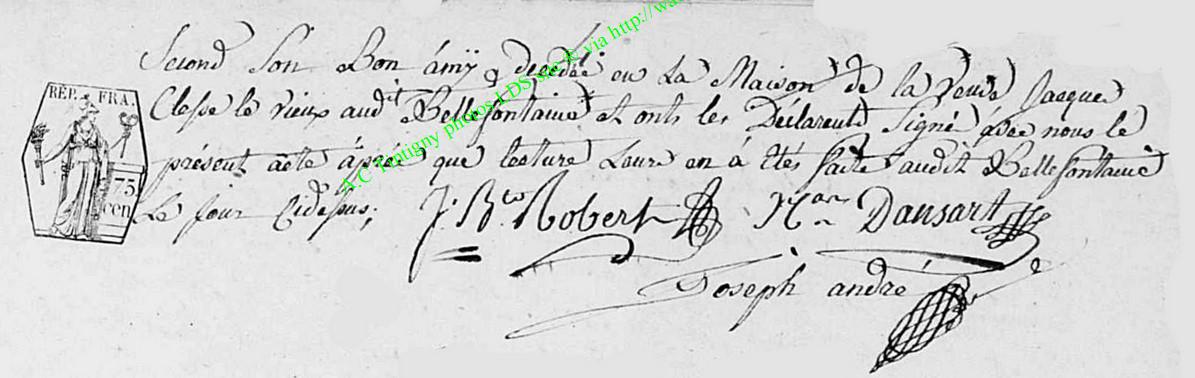 Second Son Bon ámÿ & decedée en La Maison de la veuve Jacque
Clesse le vieux audit Bellefontaine Et onts les Déclarents Signé avec nous le
présent acte áprée que lecture Leure en à Etés faite audit Bellefontaine
Le Jour Cidessus;
J. Bte Robert
Dansart
Joseph andré
RÉP. FRA.
75
cen
A.C Rentigny photos LDS via http://wa